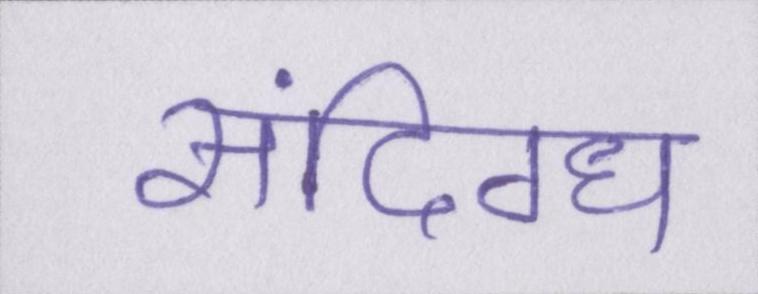 संदिग्ध